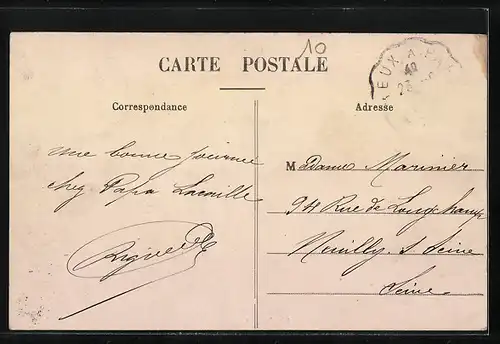 10
CARTE POSTALE
EUX A PA
49
23
Correspondance
Adresse
une bonne journée
chez Papa Lacaille
Madame Marinier
94 Rue de Longchamp
Neuilly s Seine
Seine